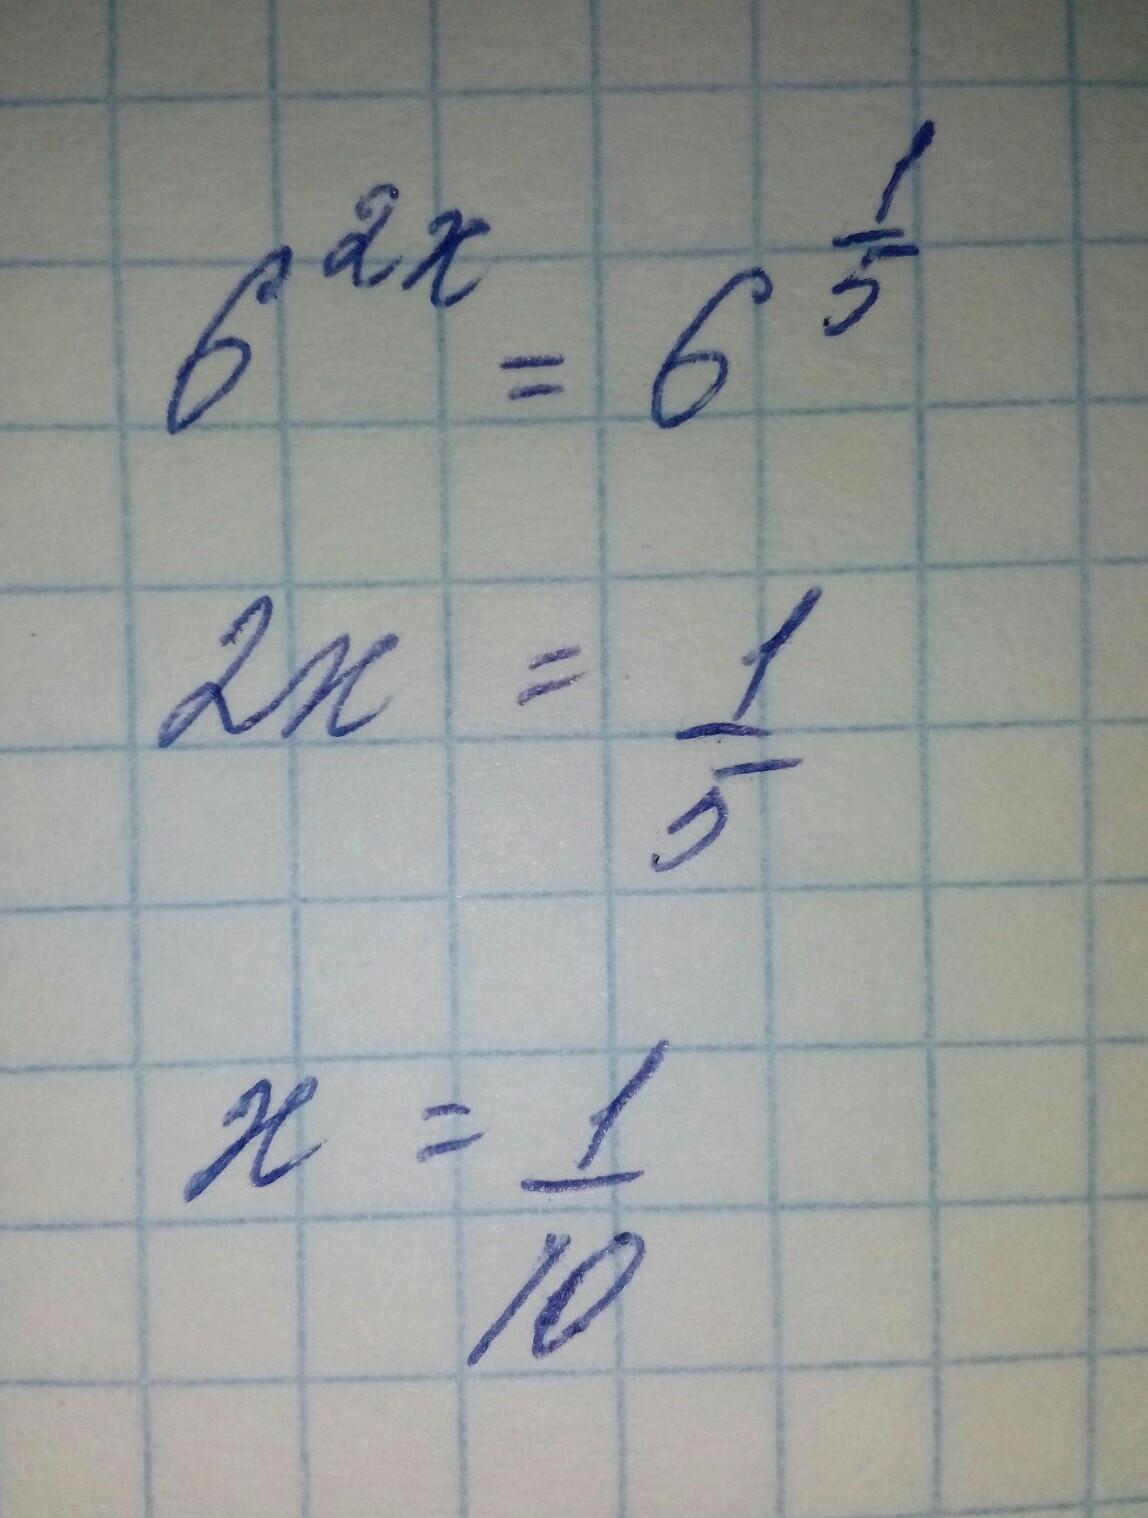 6^{2x} = 6^{\frac{1}{5}}
2x = \frac{1}{5}
x = \frac{1}{10}